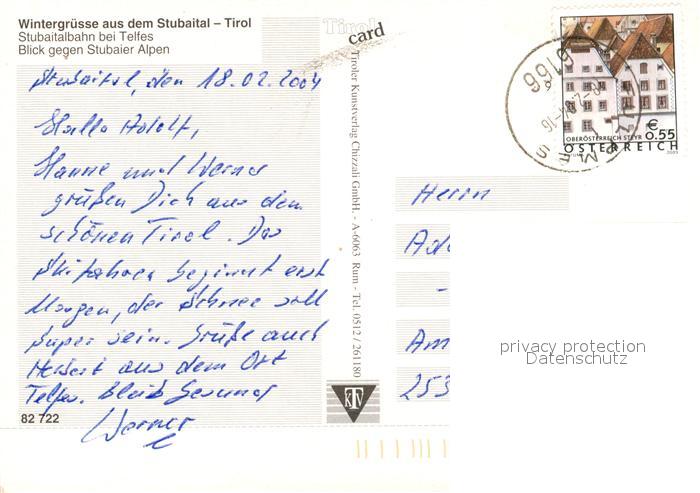 Wintergrüsse aus dem Stubaital – Tirol
Stubaitalbahn bei Telfes
Blick gegen Stubaier Alpen
Tirol
card
Stubaital, den 18.02.2004
Hallo Adolf,
Hanne und Werner
grüßen Dich aus dem
schönen Tirol. Das
Skifahren beginnt erst
Morgen, der Schnee soll
super sein. Grüße auch
Herbert aus dem Ort
Telfes. Bleib Gesund
Werner
82 722
Tiroler Kunstverlag Chizzali GmbH. - A-6063 Rum - Tel. 0512 / 261180
KTV
6166
OBERÖSTERREICH STEYR
€ 0.55
ÖSTERREICH
Herrn
Ado
-
Am
253
privacy protection
Datenschutz